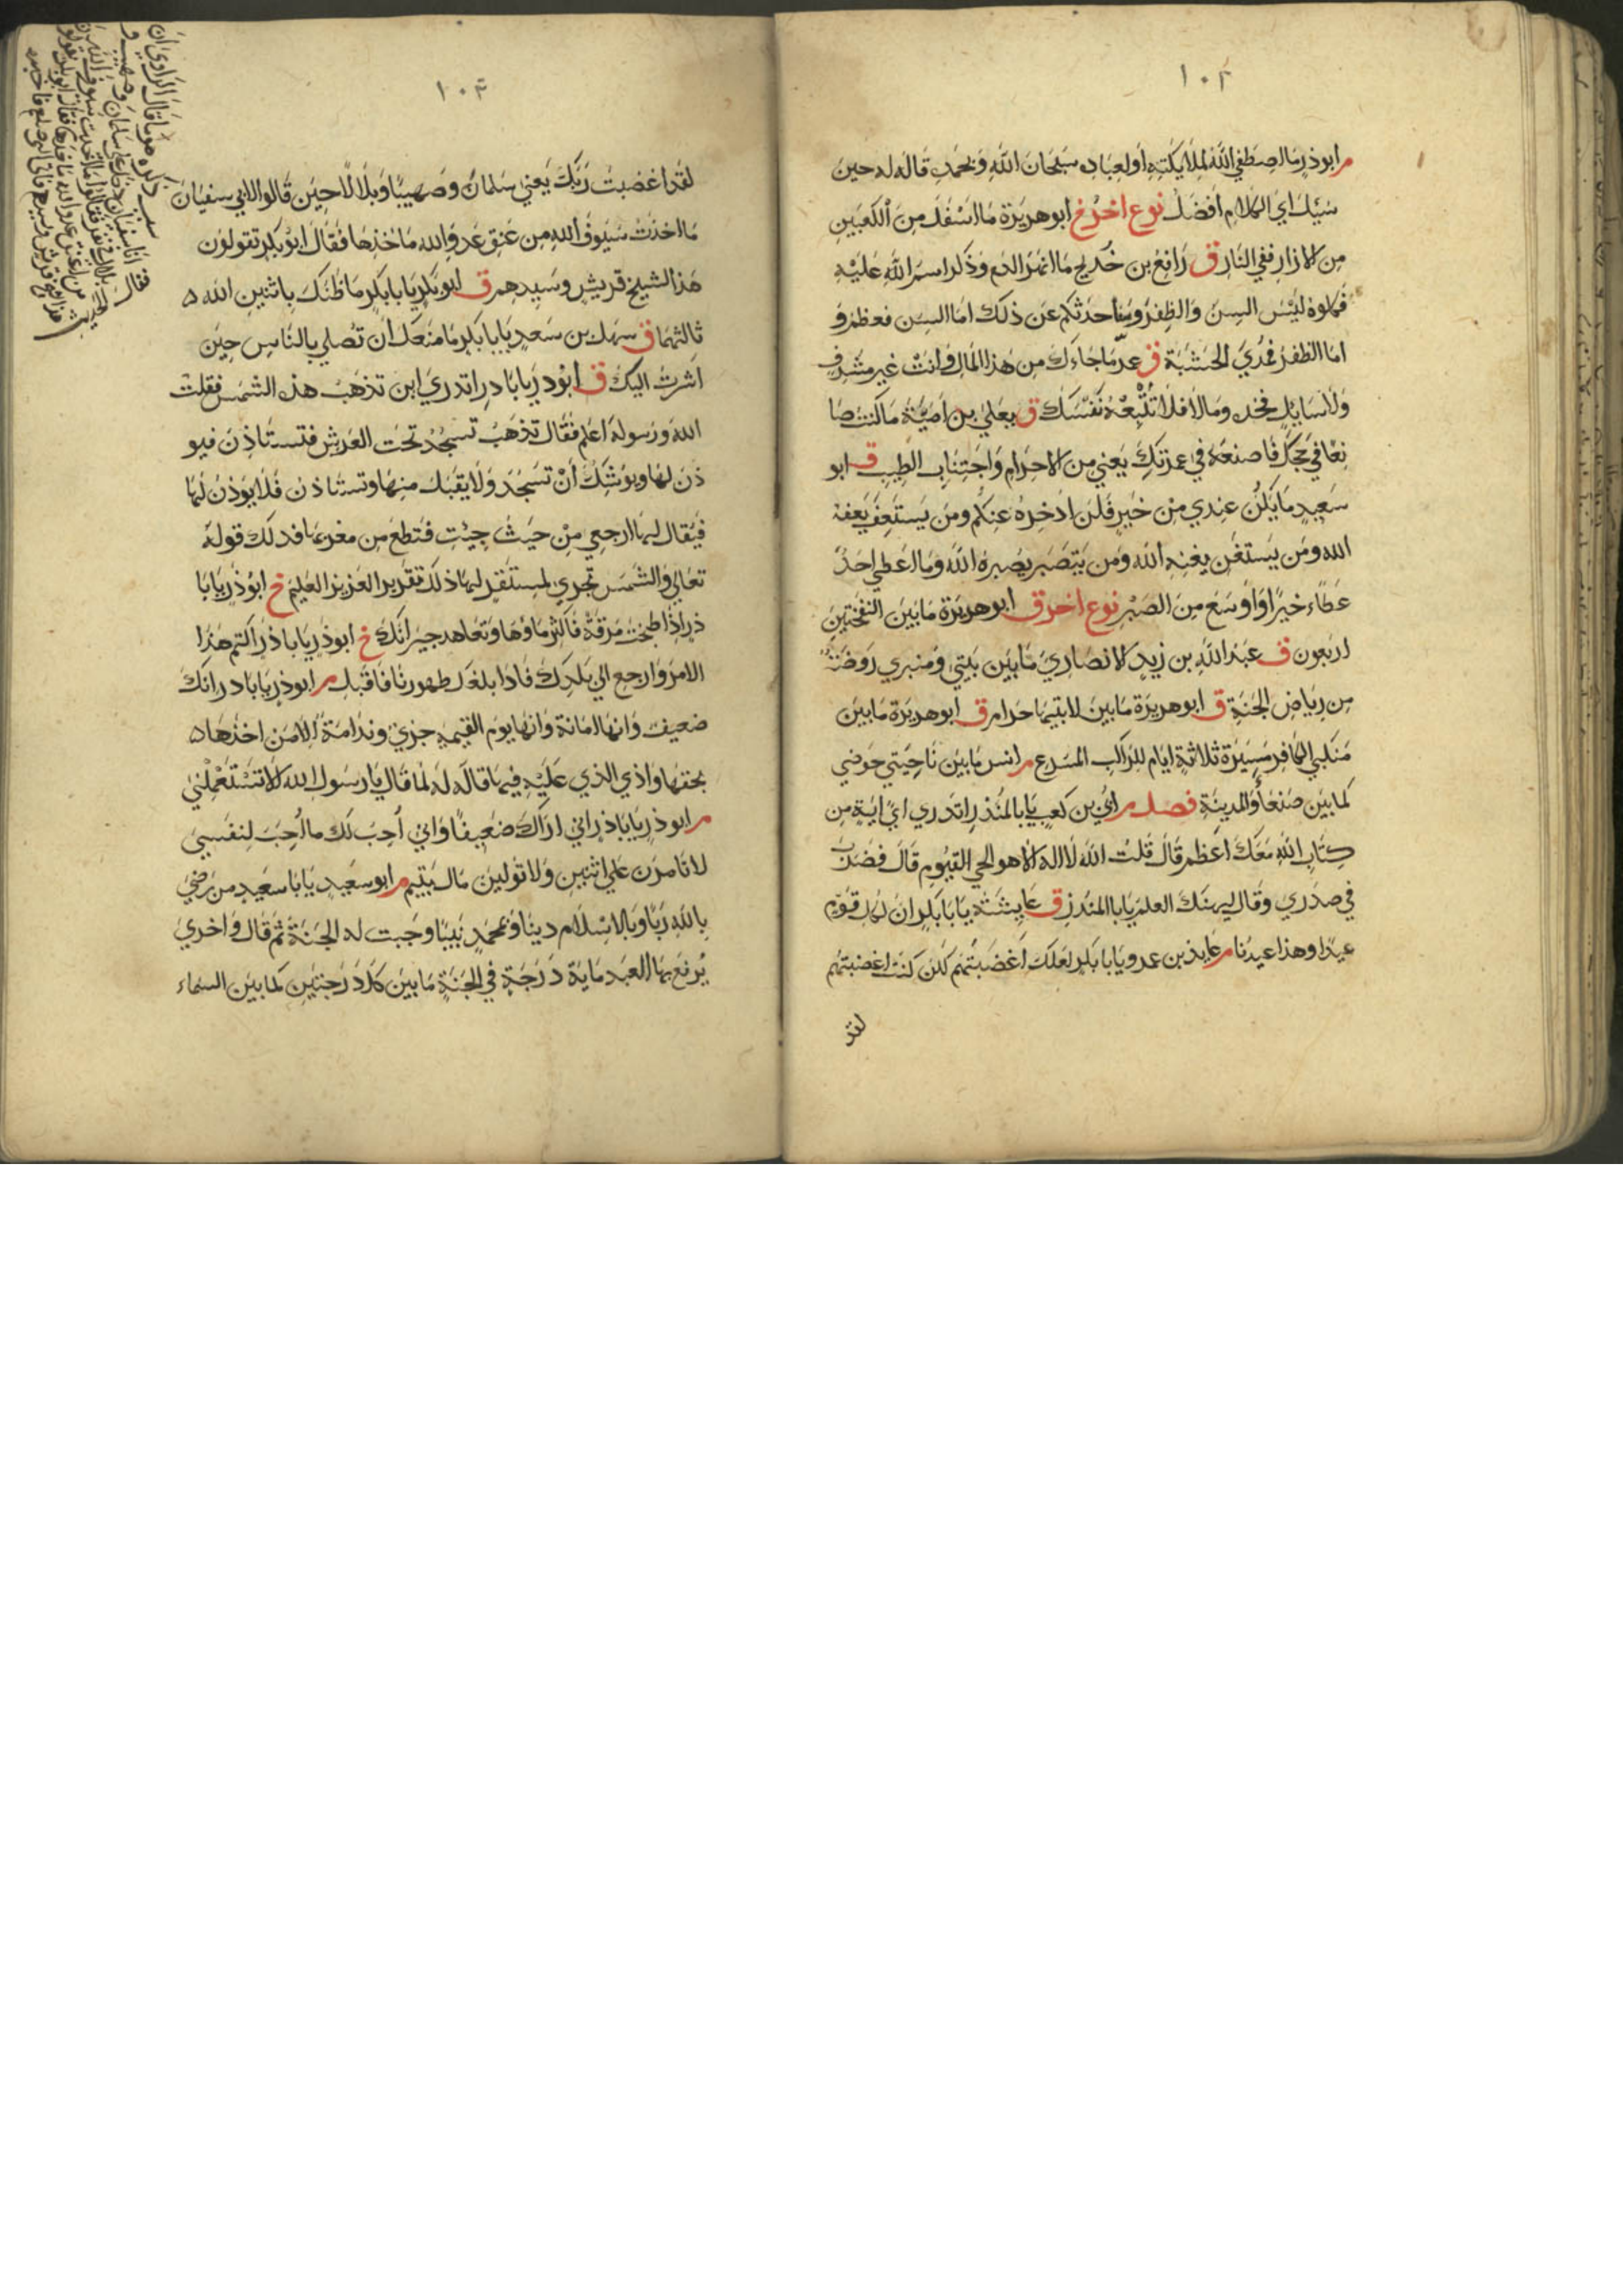 ١٠٢
م ابوذر ما اصطفي الله لملايكته اولعباده سبحان الله وبحمده قاله له حين
سئل اي الكلام افضل نوع اخر خ ابوهريرة ما اسفل من الكعبين
من الازار ففي النار ق رافع بن خديج ما انهر الدم وذكر اسم الله عليه
فكلوه ليس السن والظفر وساحدثكم عن ذلك اما السن فعظم و
اما الظفر فمدي الحبشة ق عمر ما جاءك من هذا المال وانت غير مشرف
ولا سايل فخذه ومالا فلا تتبعه نفسك ق يعلي بن امية ما كنت صا
نعا في حجك فاصنعه في عمرتك يعني من الاحرام واجتناب الطيب ق ابو
سعيد ما يكن عندي من خير فلن ادخره عنكم ومن يستعفف يعفه
الله ومن يستغن يغنه الله ومن يتصبر يصبره الله وما اعطي احد
عطاء خيرا واوسع من الصبر نوع اخر ق ابوهريرة ما بين النفختين
اربعون ق عبد الله بن زيد الانصاري ما بين بيتي ومنبري روضة
من رياض الجنة ق ابوهريرة ما بين لابتيها حرام ق ابوهريرة ما بين
منكبي الكافر مسيرة ثلاثة ايام للراكب المسرع م انس ما بين ناحيتي حوضي
كما بين صنعأ والمدينة فصل م ابي بن كعب يابا المنذر اتدري اي اية من
كتاب الله معك اعظم قال قلت الله لا اله الا هو الحي القيوم قال فضرب
في صدري وقال ليهنك العلم يابا المنذر ق عايشة يابا بكر ان لكل قوم
عيدا وهذا عيدنا م عايذ بن عمرو يابا بكر لعلك اغضبتهم لئن كنت اغضبتهم
لقد
١٠٣
لقد اغضبت ربك يعني سلمان وصهيبا وبلالا حين قالوا لابي سفيان
ما اخذت سيوف الله من عنق عدو الله ماخذها فقال ابو بكر تقولون
هذا لشيخ قريش وسيدهم ق ابو بكر يابا بكر ما ظنك باثنين الله
ثالثهما ق سهل بن سعد يابا بكر ما منعك ان تصلي بالناس حين
اشرت اليك ق ابوذر يابا ذر اتدري اين تذهب هذه الشمس فقلت
الله ورسوله اعلم فقال تذهب تسجد تحت العرش فتستاذن فيو
ذن لها ويوشك ان تسجد ولا يقبل منها وتستاذن فلا يوذن لها
فيقال لها ارجعي من حيث جئت فتطلع من مغربها فذلك قوله
تعالي والشمس تجري لمستقر لها ذلك تقدير العزيز العليم خ ابوذر يابا
ذر اذا طبخت مرقة فاكثر ماؤها وتعاهد جيرانك خ ابوذر يابا ذر اكتم هذا
الامر وارجع الي بلدك فاذا بلغك ظهورنا فاقبل م ابوذر يابا ذر انك
ضعيف وانها امانة وانها يوم القيمة خزي وندامة الا من اخذها
بحقها وادي الذي عليه فيها قاله له لما قال يا رسول الله الا تستعملني
م ابوذر يابا ذر اني اراك ضعيفا واني أحب لك ما أحب لنفسي
لا تامرن علي اثنين ولا تولين مال يتيم م ابو سعيد يابا سعيد من رضي
بالله ربا وبالاسلام دينا وبمحمد نبيا وجبت له الجنة ثم قال واخري
يرفع بها العبد ماية درجة في الجنة ما بين كل درجتين كما بين السماء
سبب ذكره هو ما قال الراوي ان